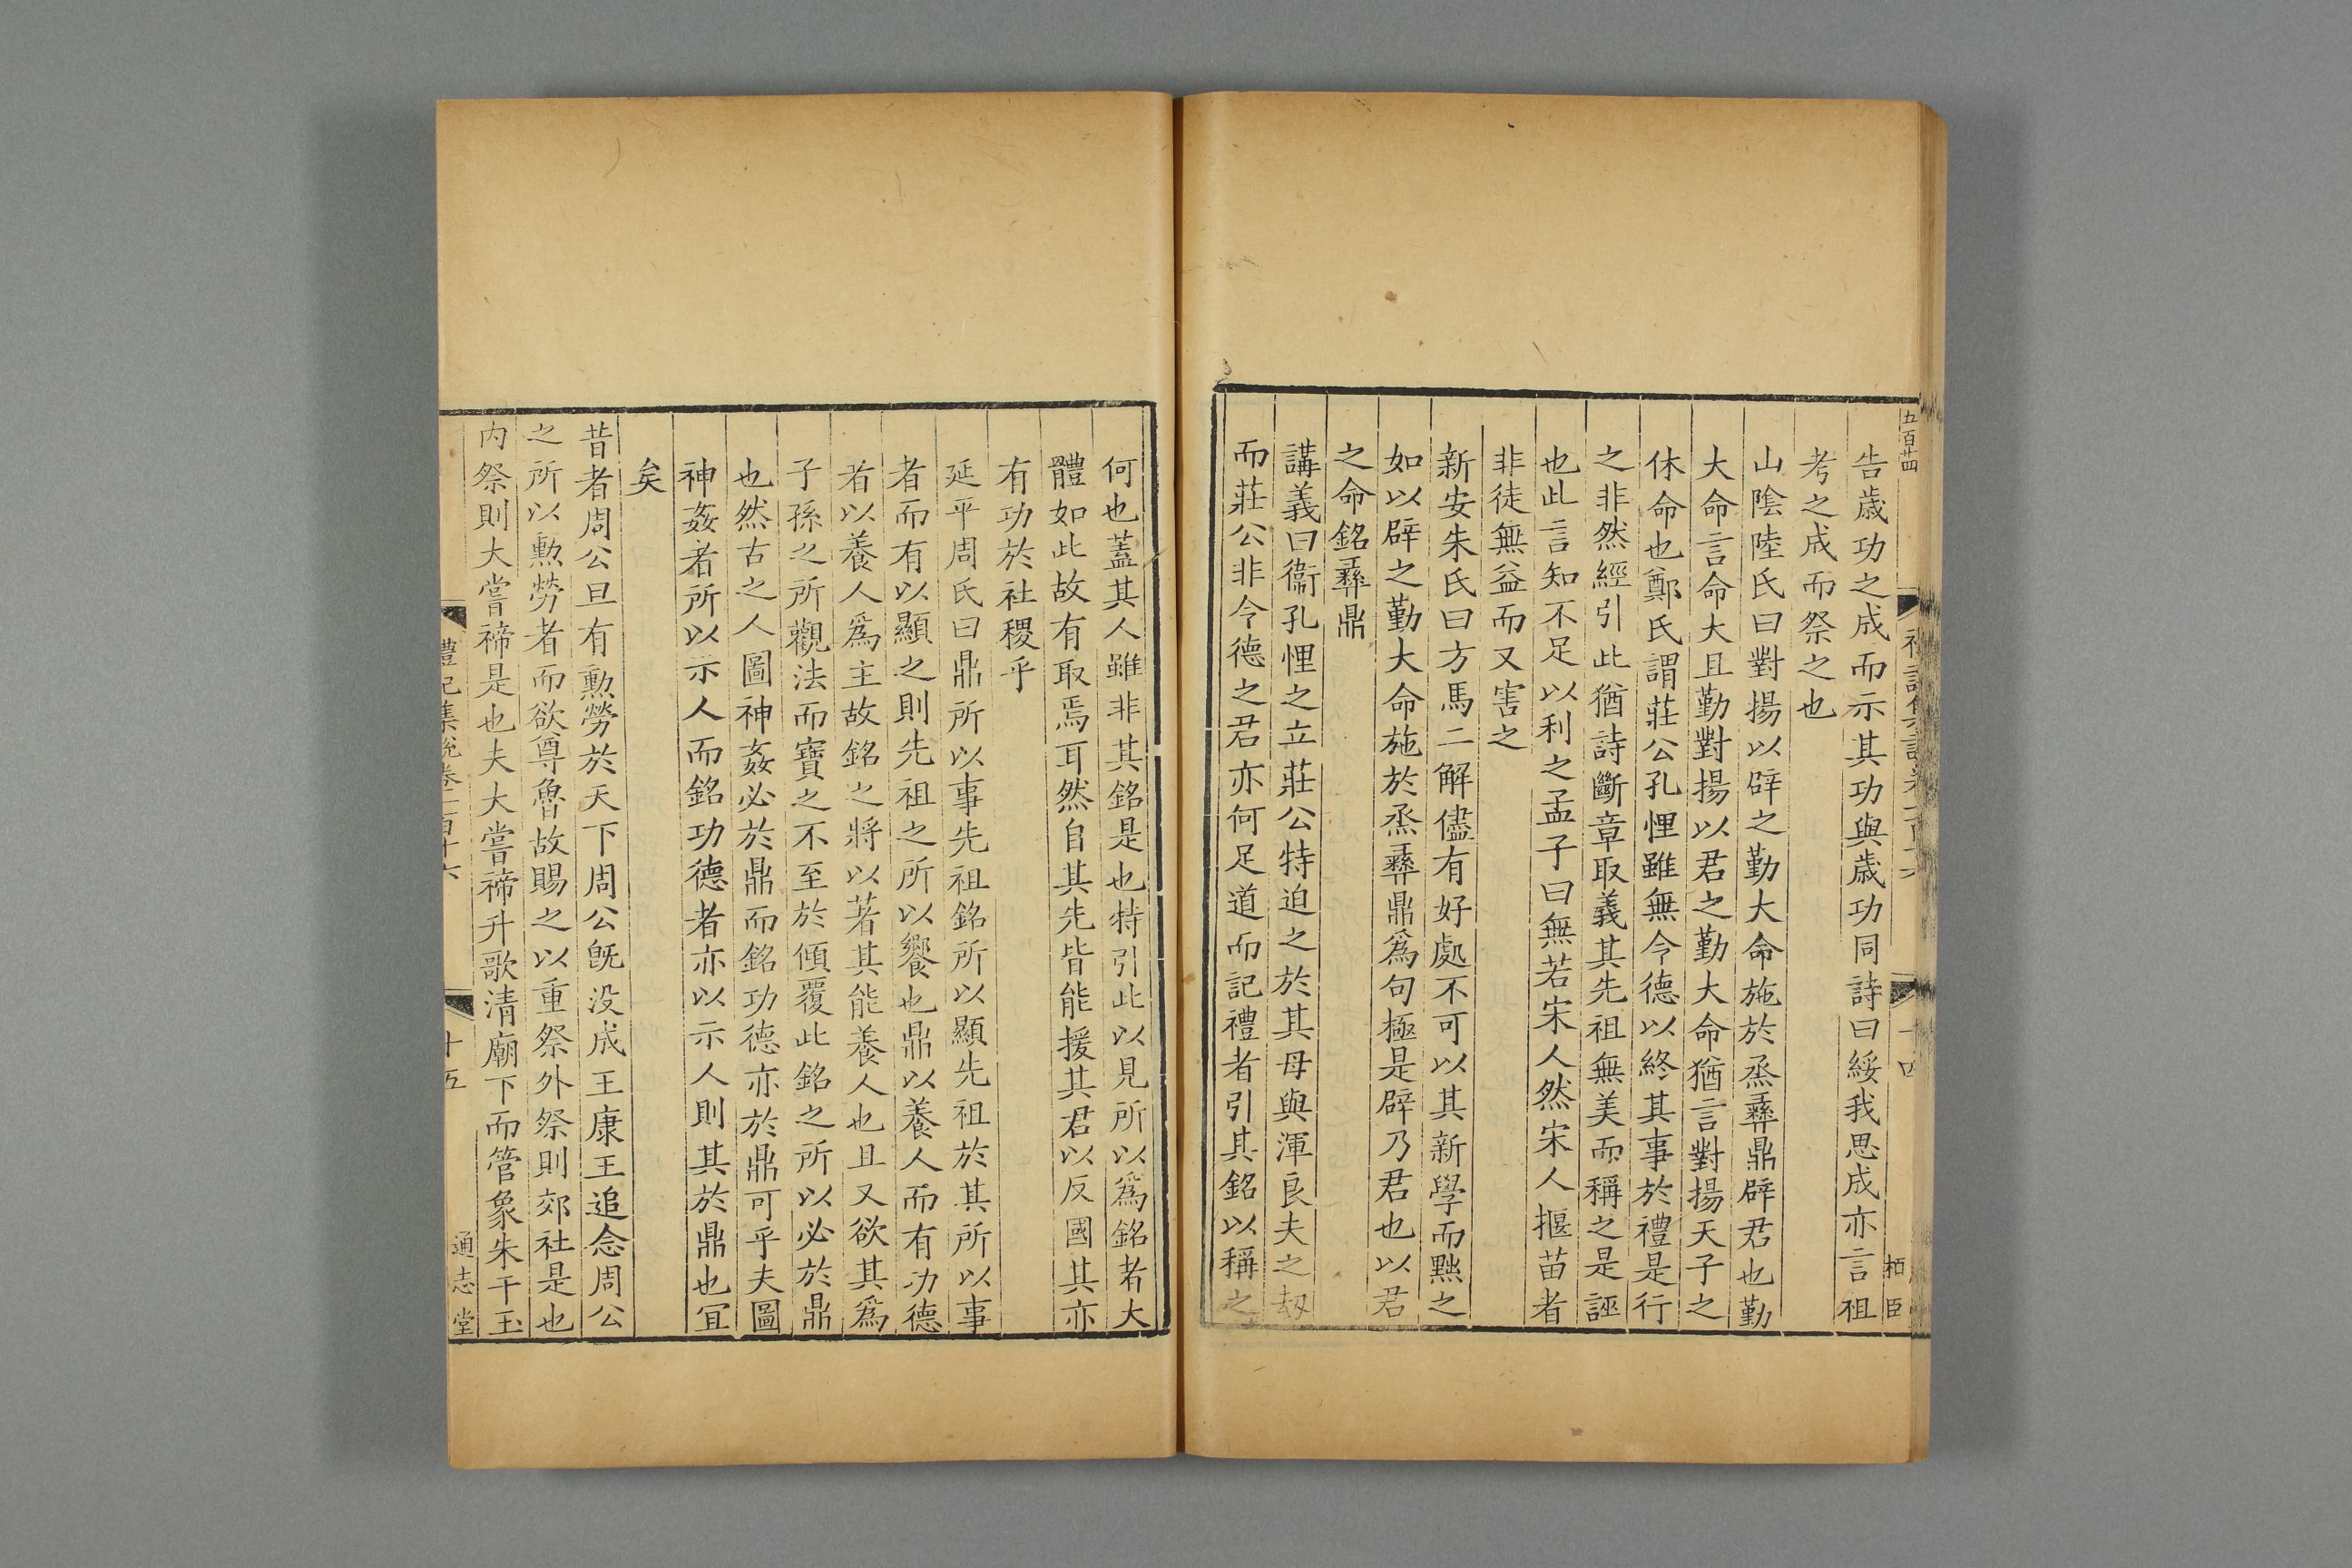 五百廿四
告歲功之成而示其功與歲功同詩曰綏我思成亦言祖
考之成而祭之也
山陰陸氏曰對揚以辟之勤大命施於烝彝鼎辟君也勤
大命言命大且勤對揚以君之勤大命猶言對揚天子之
休命也鄭氏謂莊公孔悝雖無令德以終其事於禮是行
之非然經引此猶詩斷章取義其先祖無美而稱之是誣
也此言知不足以利之孟子曰無若宋人然宋人揠苗者
非徒無益而又害之
新安朱氏曰方馬二解儘有好處不可以其新學而黜之
如以辟之勤大命施於烝彝鼎爲句極是辟乃君也以君
之命銘彝鼎
講義曰衞孔悝之立莊公特迫之於其母與渾良夫之刼
而莊公非令德之君亦何足道而記禮者引其銘以稱之
十四
栢臣
何也蓋其人雖非其銘是也特引此以見所以爲銘者大
體如此故有取焉耳然自其先皆能援其君以反國其亦
有功於社稷乎
延平周氏曰鼎所以事先祖銘所以顯先祖於其所以事
者而有以顯之則先祖之所以饗也鼎以養人而有功德
者以養人爲主故銘之將以著其能養人也且又欲其爲
子孫之所觀法而寶之不至於傾覆此銘之所以必於鼎
也然古之人圖神姦必於鼎而銘功德亦於鼎可乎夫圖
神姦者所以示人而銘功德者亦以示人則其於鼎也宜
矣
昔者周公旦有勳勞於天下周公旣没成王康王追念周公
之所以勳勞者而欲尊魯故賜之以重祭外祭則郊社是也
内祭則大嘗禘是也夫大嘗禘升歌清廟下而管象朱干玉
禮記集說卷一百十六
十五
通志堂